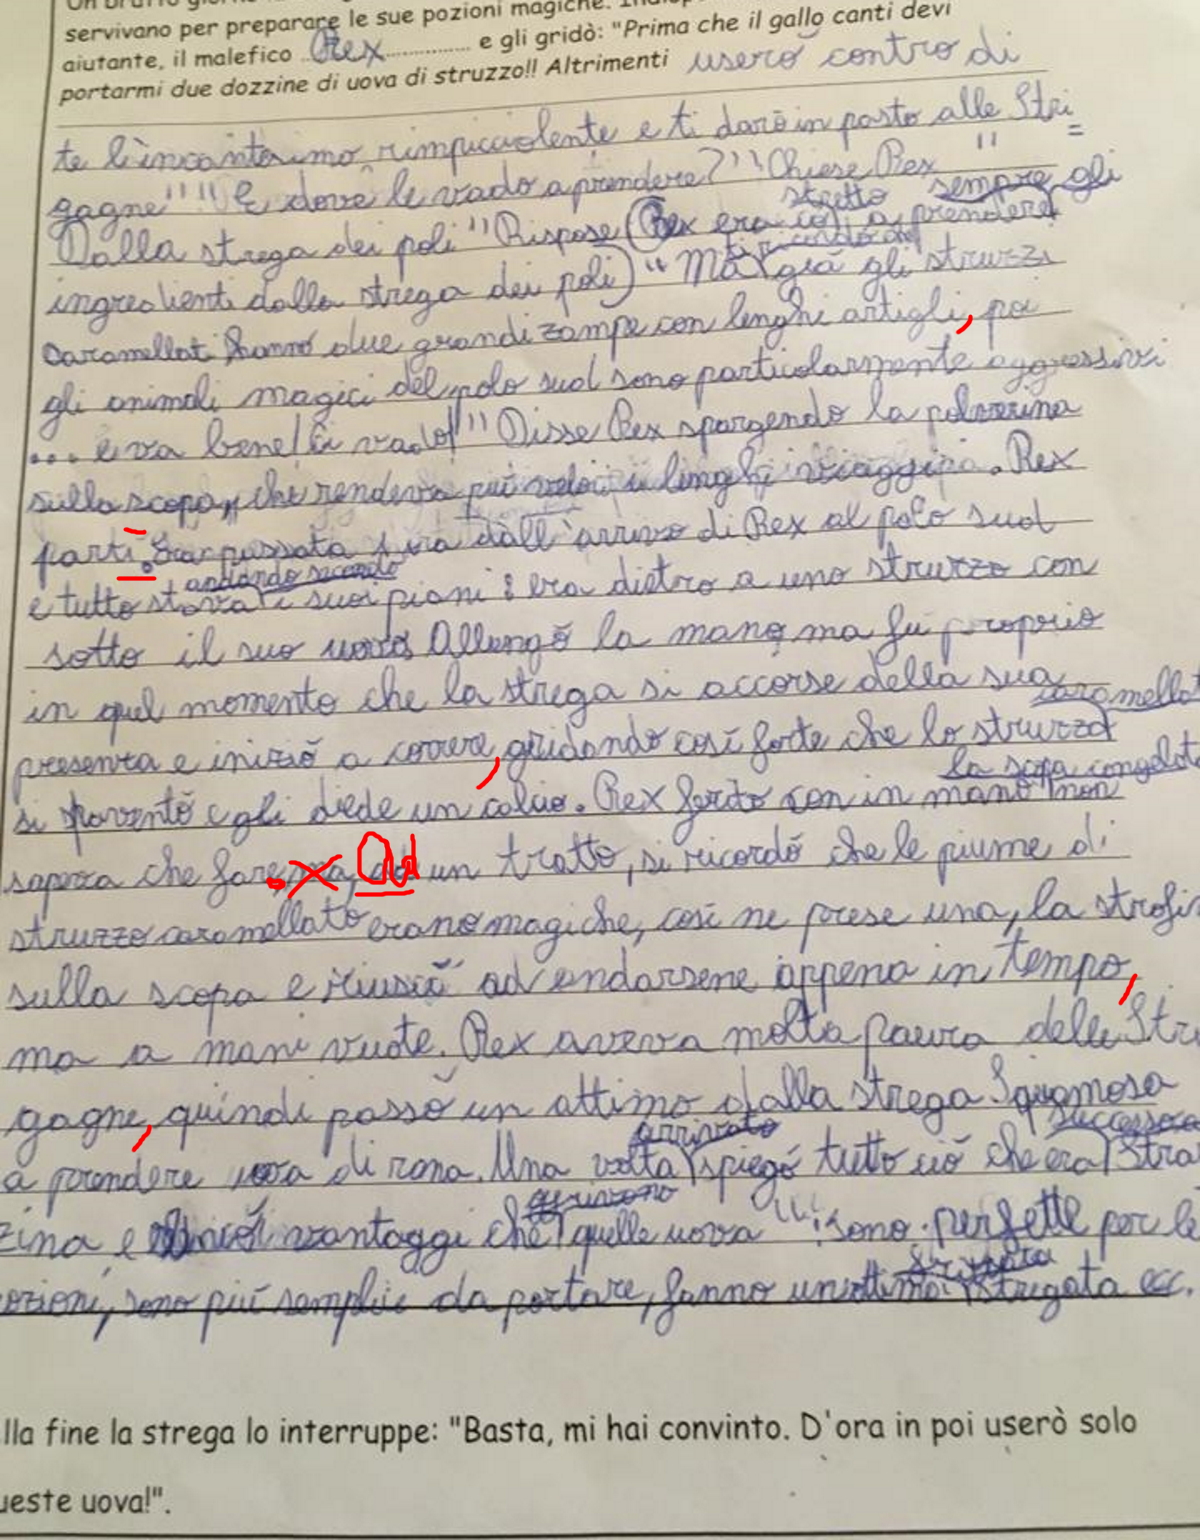 servivano per preparare le sue pozioni magiche.
aiutante, il malefico Rex e gli gridò: "Prima che il gallo canti devi
portarmi due dozzine di uova di struzzo!! Altrimenti userò contro di
te l'incantesimo rimpicciolente e ti darò in pasto alle Stri=
gagne" "E dove le vado a prendere?" Chiese Rex "
Dalla strega dei poli" Rispose (Rex era costretto a prendere sempre gli
ingredienti dalla strega dei poli) "Ma già gli struzzi
caramellati hanno due grandi zampe con lenghi artigli, poi
gli animali magici del polo sud sono particolarmente aggressivi
... e va bene! Ci vado!" Disse Rex spargendo la polverina
sulla scopa, che rendeva più veloci i linghi viaggi. Rex
partì. Era passata 1 ora dall'arrivo di Rex al polo sud
e tutto stava andando secondo i suoi piani: era dietro a uno struzzo con
sotto il suo uovo. Allungò la mano, ma fu proprio
in quel momento che la strega si accorse della sua
presenza e iniziò a correre, gridando così forte che lo struzzo caramellat
si spaventò e gli diede un calcio. Rex ferito con in mano la scopa congelata non
sapeva che fare. Ad un tratto, si ricordò che le piume di
struzzo caramellato erano magiche, così ne prese una, la strofi
sulla scopa e riuscì ad andarsene appena in tempo,
ma a mani vuote. Rex aveva molta paura delle Stri
gagne, quindi passò un attimo dalla strega Squamosa
a prendere uova di rana. Una volta arrivato spiegò tutto ciò che era successo a Stra
zina e vantaggi che avevano quelle uova "": sono perfette per le
pozioni, sono più semplici da portare, fanno un'ottima frittata stregata ecc.
lla fine la strega lo interruppe: "Basta, mi hai convinto. D'ora in poi userò solo
ueste uova!".